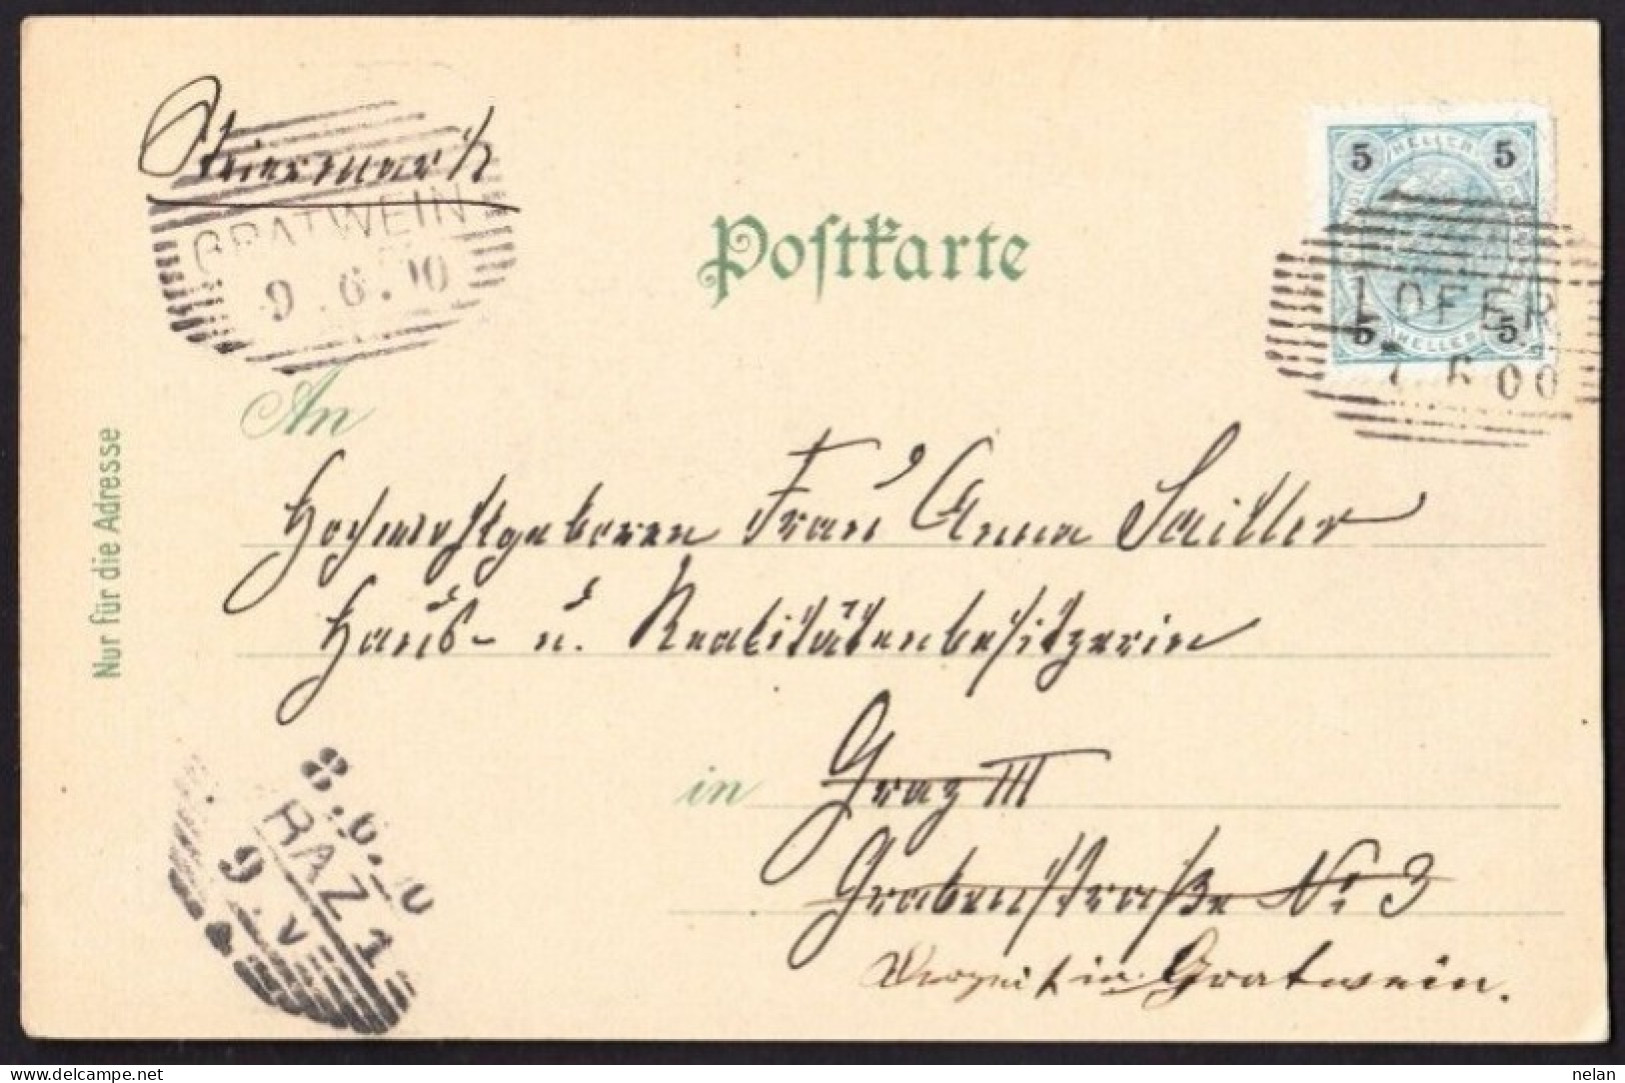 Steiermark
GRATWEIN
9.6.00
Postkarte
5 HELLER 5
5 HELLER 5
LOFER
7 6 00
An
Hochwohlgeboren Frau Anna Sailler
Haus- u. Realitätenbesitzerin
in Graz III
Grabenstraße No 3
Derzeit in Gratwein.
Nur für die Adresse
8.6.00
RAZ 1
9.V
nelan